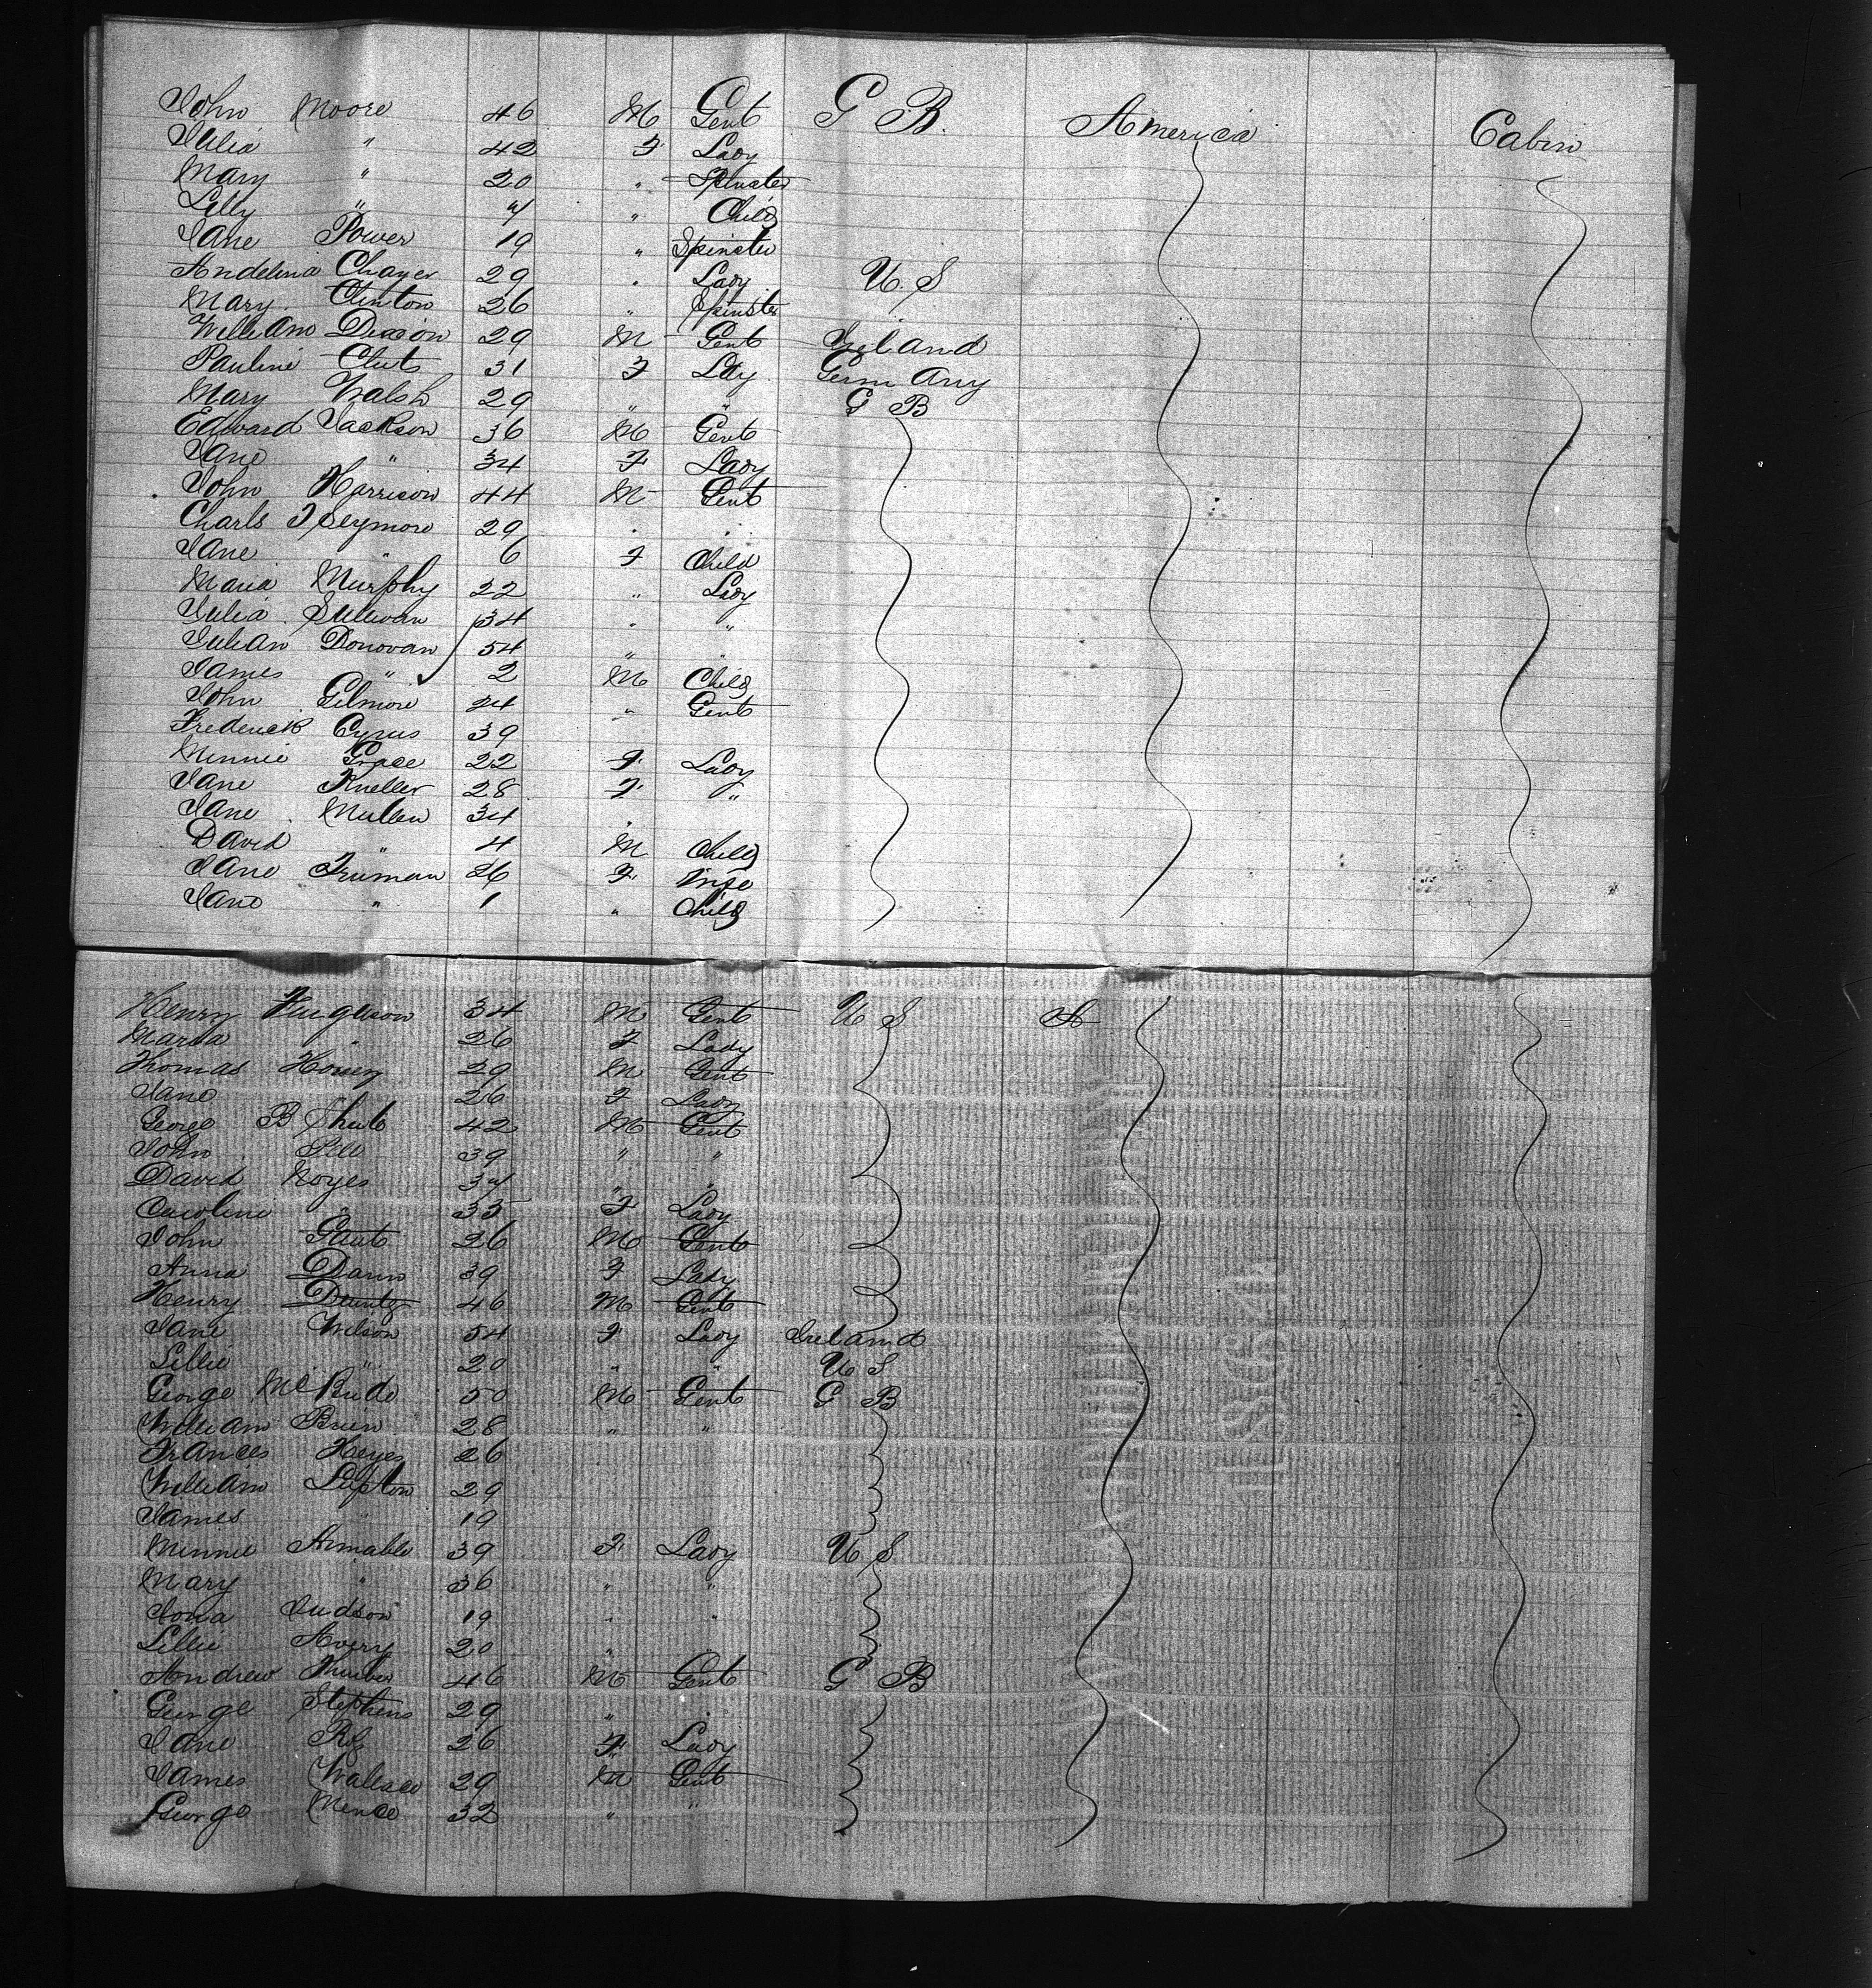 John Moore 46 M Gent G B. America Cabin
Julia " 42 F Lady
Mary " 20 " Spinster
Lilly " 4 " Child
Jane Power 19 " Spinster
Andelina Chayer 29 " Lady U. S
Mary Clinton 26 " Spinster
William Dixion 29 M Gent Ireland
Pauline Cluts 31 F Ldy Germany
Mary Walsh 29 " " G B
Edward Jackson 36 M Gent
Jane " 34 F Lady
John Harrison 44 M Gent
Charls J Seymore 29 " "
Jane " 6 F Child
Maria Murphy 22 " Lady
Julia Sullivan 34 " "
Julian Donovan 54 " "
James " 2 M Child
John Gilmore 24 " Gent
Frederick Cyrus 39
Minnie Grace 22 F Lady
Jane Kneller 28 F "
Jane Mullen 34 "
David " 4 M Child
Jane Truman 26 F Wife
Jane " 1 " Child
Henry Furguson 34 M Gent U S A
Maria " 26 F Lady
Thomas 29 M Gent
Jane 26 F Lady
George B Shute 42 M Gent
John 39 " "
David Noyes 34 " "
Caroline " 33 F Lady
John 26 M Gent
Anna 39 F Lady
Henry 46 M Gent
Jane Wilson 54 F Lady Ireland
Lillie " 20 " " U S
George McBride 50 M Gent G B
William Brien 28 " "
Frances Heyes 26
William Lupton 29
James " 19
Minnie Armable 39 F Lady U S
Mary " 36 " "
Iona Judson 19 " "
Lillie Avery 20 "
Andrew 46 M Gent G B
George Stephens 29 " "
Jane 26 F Lady
James Wallace 29 M Gent
George 32 " "